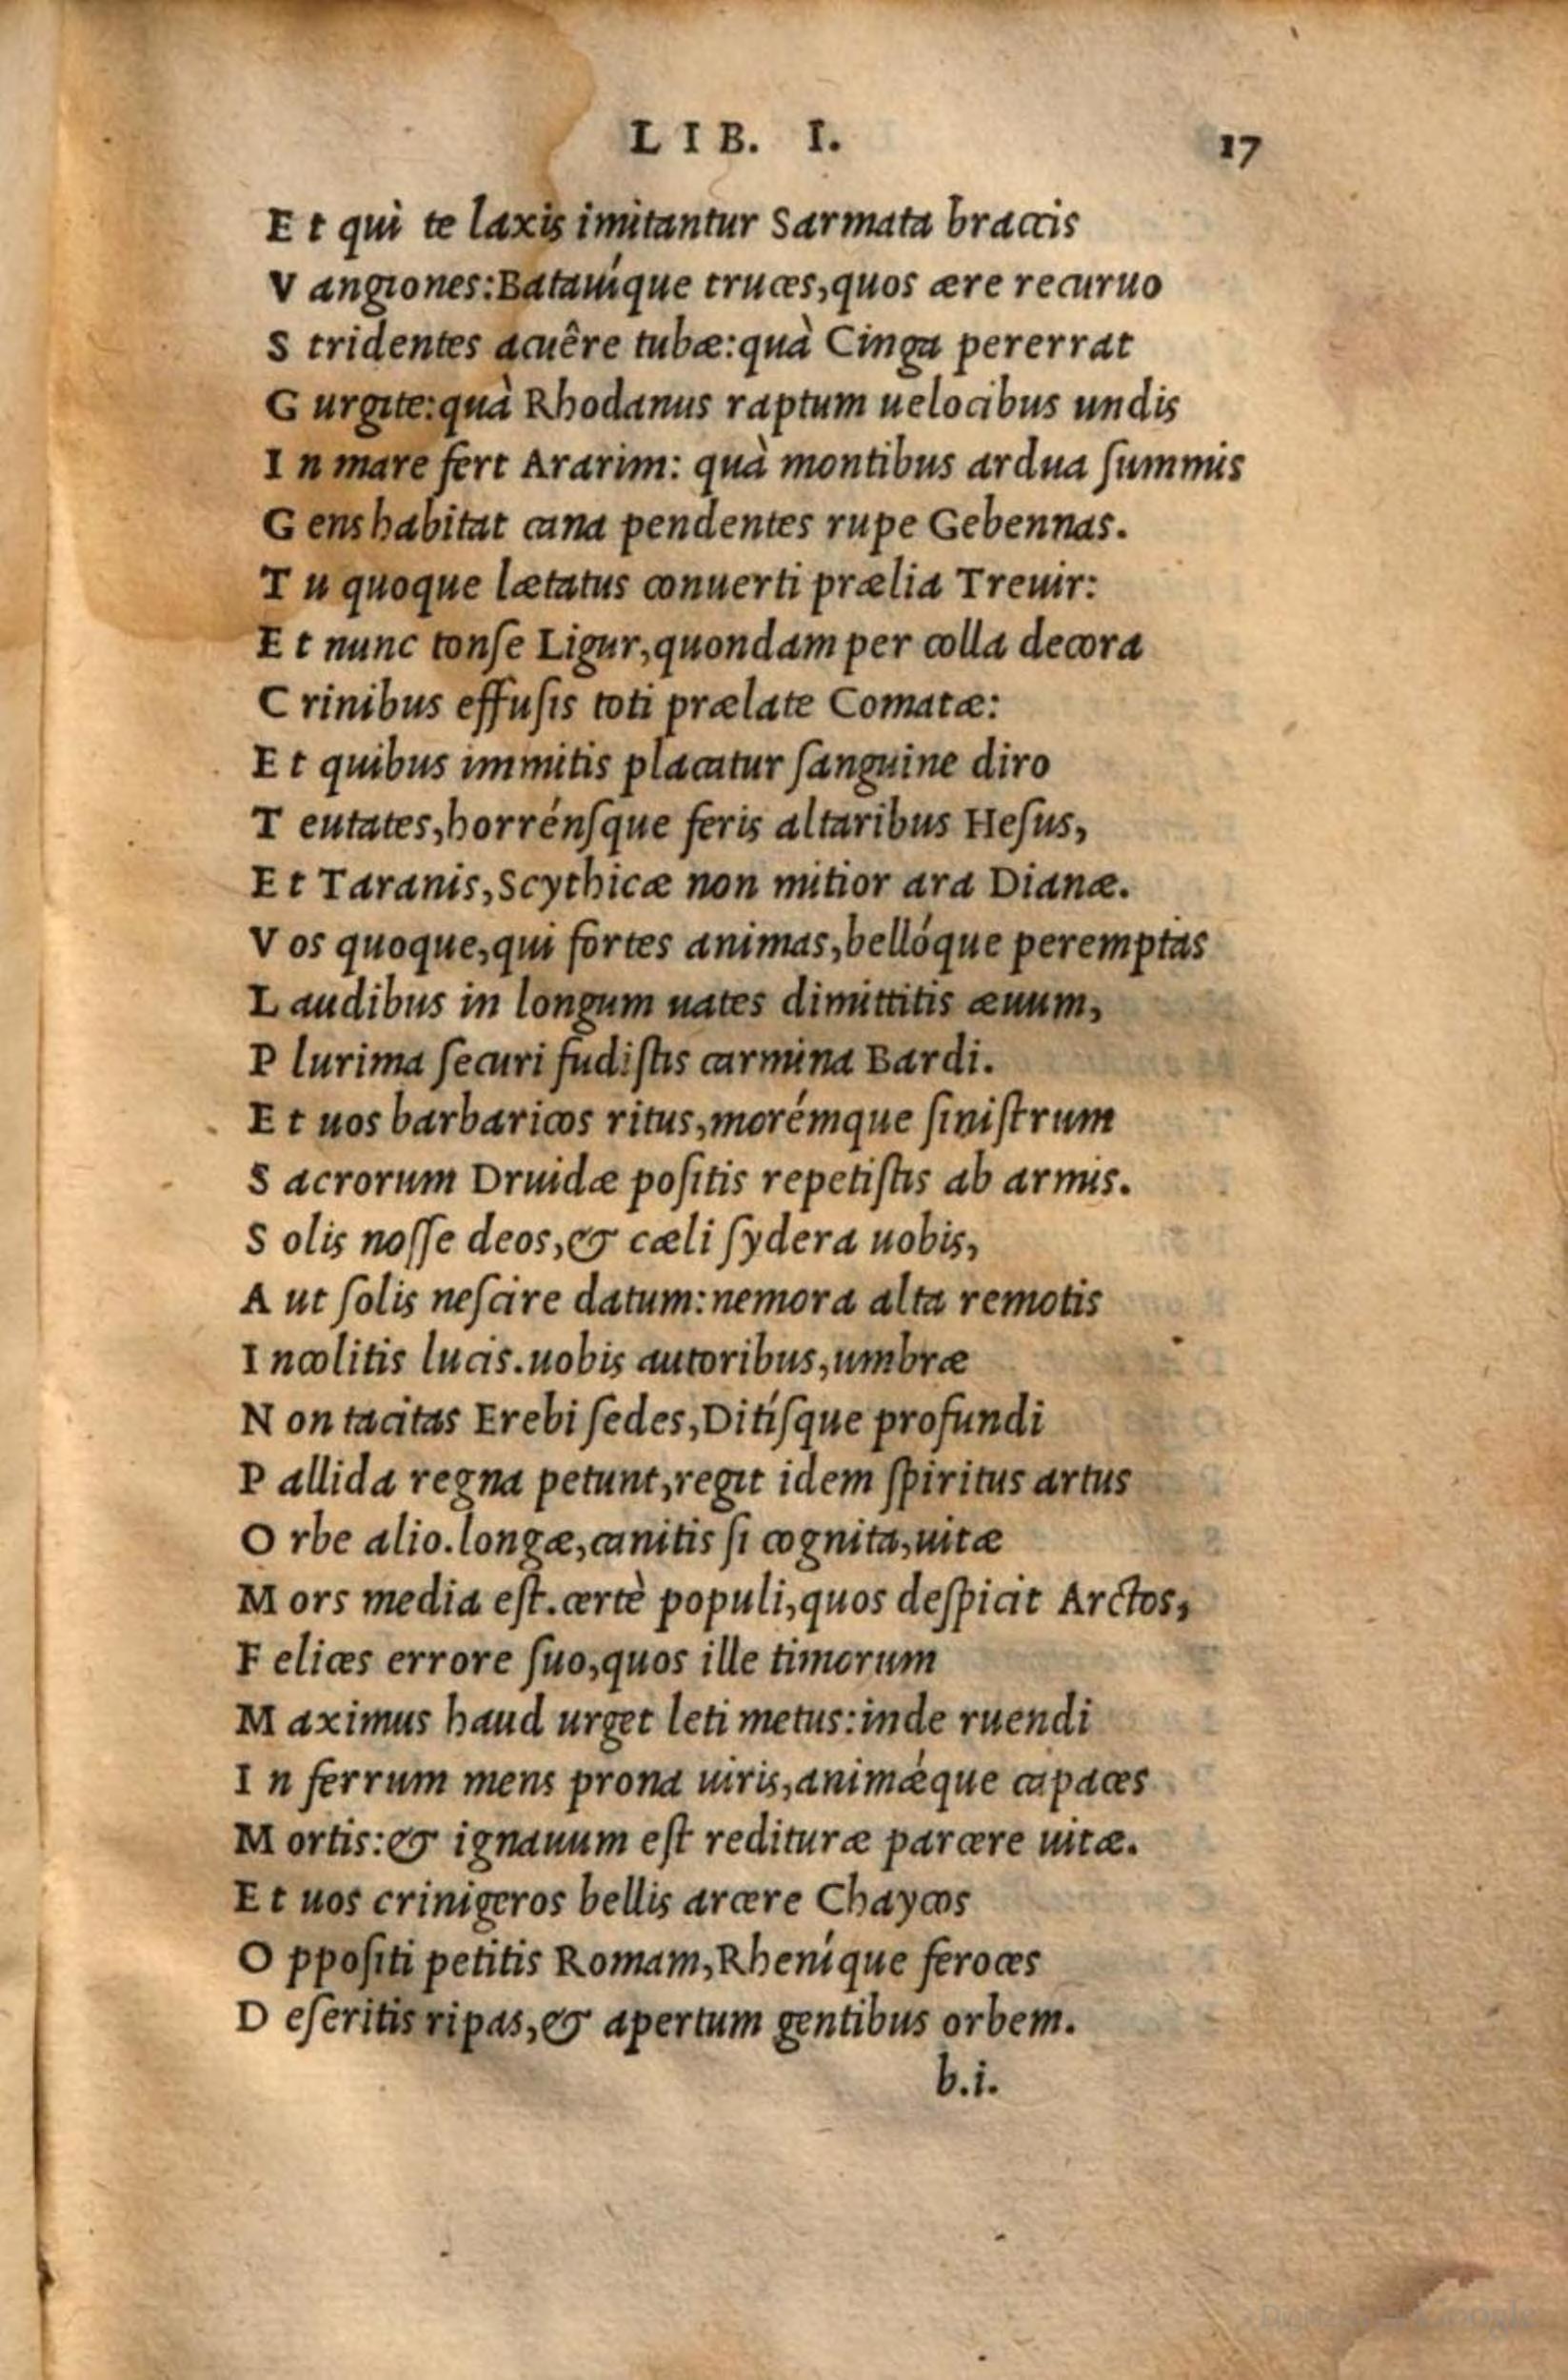 LIB. I. 17
Et quì te laxis imitantur Sarmata braccis
Vangiones: Batauíque truces, quos ære recuruo
Stridentes acuêre tubæ: quà Cinga pererrat
Gurgite: quà Rhodanus raptum uelocibus undis
In mare fert Ararim: quà montibus ardua ſummis
Gens habitat cana pendentes rupe Gebennas.
Tu quoque lætatus conuerti prælia Treuir:
Et nunc tonſe Ligur, quondam per colla decora
Crinibus effuſis toti prælate Comatæ:
Et quibus immitis placatur ſanguine diro
Teutates, horrénſque feris altaribus Heſus,
Et Taranis, Scythicæ non mitior ara Dianæ.
Vos quoque, qui fortes animas, bellóque peremptas
Laudibus in longum uates dimittitis æuum,
Plurima ſecuri fudiſtis carmina Bardi.
Et uos barbaricos ritus, morémque ſiniſtrum
Sacrorum Druidæ poſitis repetiſtis ab armis.
Solis noſſe deos, & cæli ſydera uobis,
Aut ſolis neſcire datum: nemora alta remotis
Incolitis lucis. uobis autoribus, umbræ
Non tacitas Erebi ſedes, Ditíſque profundi
Pallida regna petunt, regit idem ſpiritus artus
Orbe alio. longæ, canitis ſi cognita, uitæ
Mors media eſt. certè populi, quos deſpicit Arctos,
Felices errore ſuo, quos ille timorum
Maximus haud urget leti metus: inde ruendi
In ferrum mens prona uiris, animǽque capaces
Mortis: & ignauum eſt redituræ parcere uitæ.
Et uos crinigeros bellis arcere Chaycos
Oppoſiti petitis Romam, Rheníque feroces
Deſeritis ripas, & apertum gentibus orbem.
b.i.
Digitized by Google